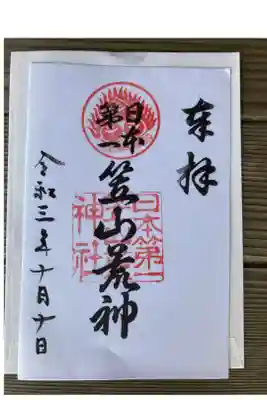 奉拝
日本
第一
笠山荒神
日本第一
神社
令和三年十月十日